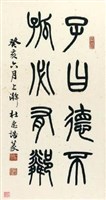 子曰德不
孤必有鄰
癸亥六月上澣杜忠誥篆